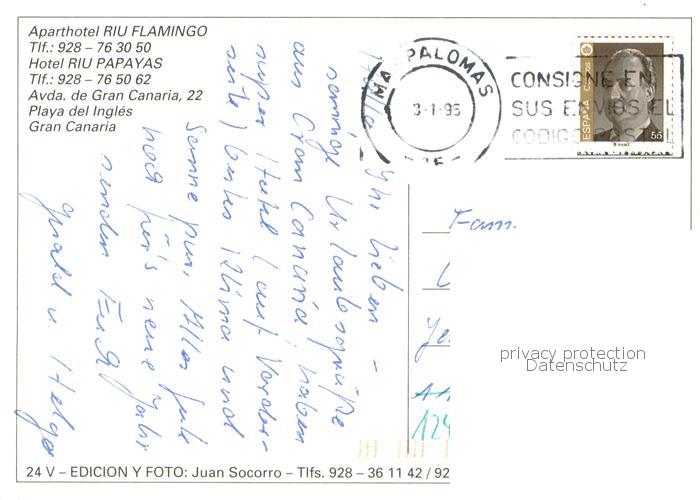 Aparthotel RIU FLAMINGO
Tlf.: 928 – 76 30 50
Hotel RIU PAPAYAS
Tlf.: 928 – 76 50 62
Avda. de Gran Canaria, 22
Playa del Inglés
Gran Canaria
MASPALOMAS
3-1-96
CONSIGNE EN
SUS ENVIOS EL
CODIGO POSTAL
ESPAÑA CORREOS
55
Hallo Ihr Lieben –
sonnige Urlaubsgrüße
aus Gran Canaria, haben
super Hotel (auf Vorder-
seite) bestes Klima und
Sonne pur. Alles Gute
noch für's neue Jahr
senden Euch
Gerald u. Helga
Fam.
privacy protection
Datenschutz
124
24 V – EDICION Y FOTO: Juan Socorro – Tlfs. 928 – 36 11 42 / 92